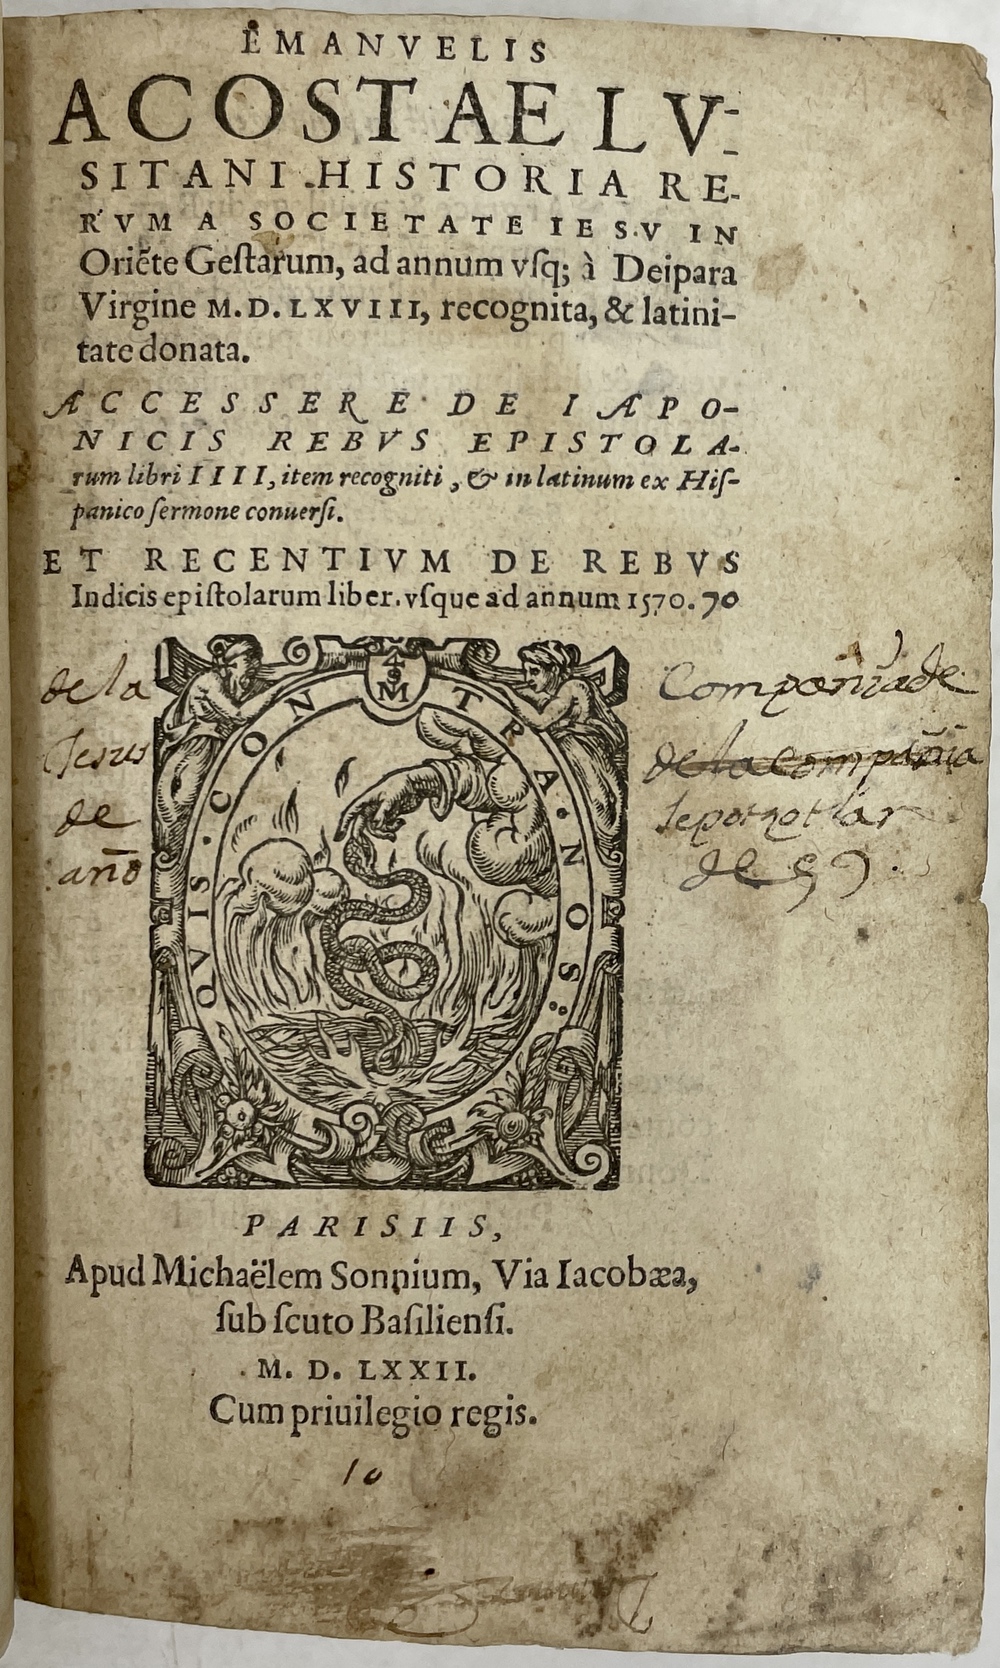 EMANVELIS
ACOSTAE LV-
SITANI HISTORIA RE-
RVM A SOCIETATE IESV IN
Oriẽte Geſtarum, ad annum vſq; à Deipara
Virgine M.D.LXVIII, recognita, & latini-
tate donata.
ACCESSERE DE IAPO-
NICIS REBVS EPISTOLA-
rum libri IIII, item recogniti, & in latinum ex Hiſ-
panico ſermone conuerſi.
ET RECENTIVM DE REBVS
Indicis epiſtolarum liber. vſque ad annum 1570. 70
4
M
QVIS · CONTRA · NOS :
de la Compañia de
Jesus de la Compañia
de Tepotzotlan
año de 59
PARISIIS,
Apud Michaëlem Sonnium, Via Iacobæa,
ſub ſcuto Baſilienſi.
M. D. LXXII.
Cum priuilegio regis.
10